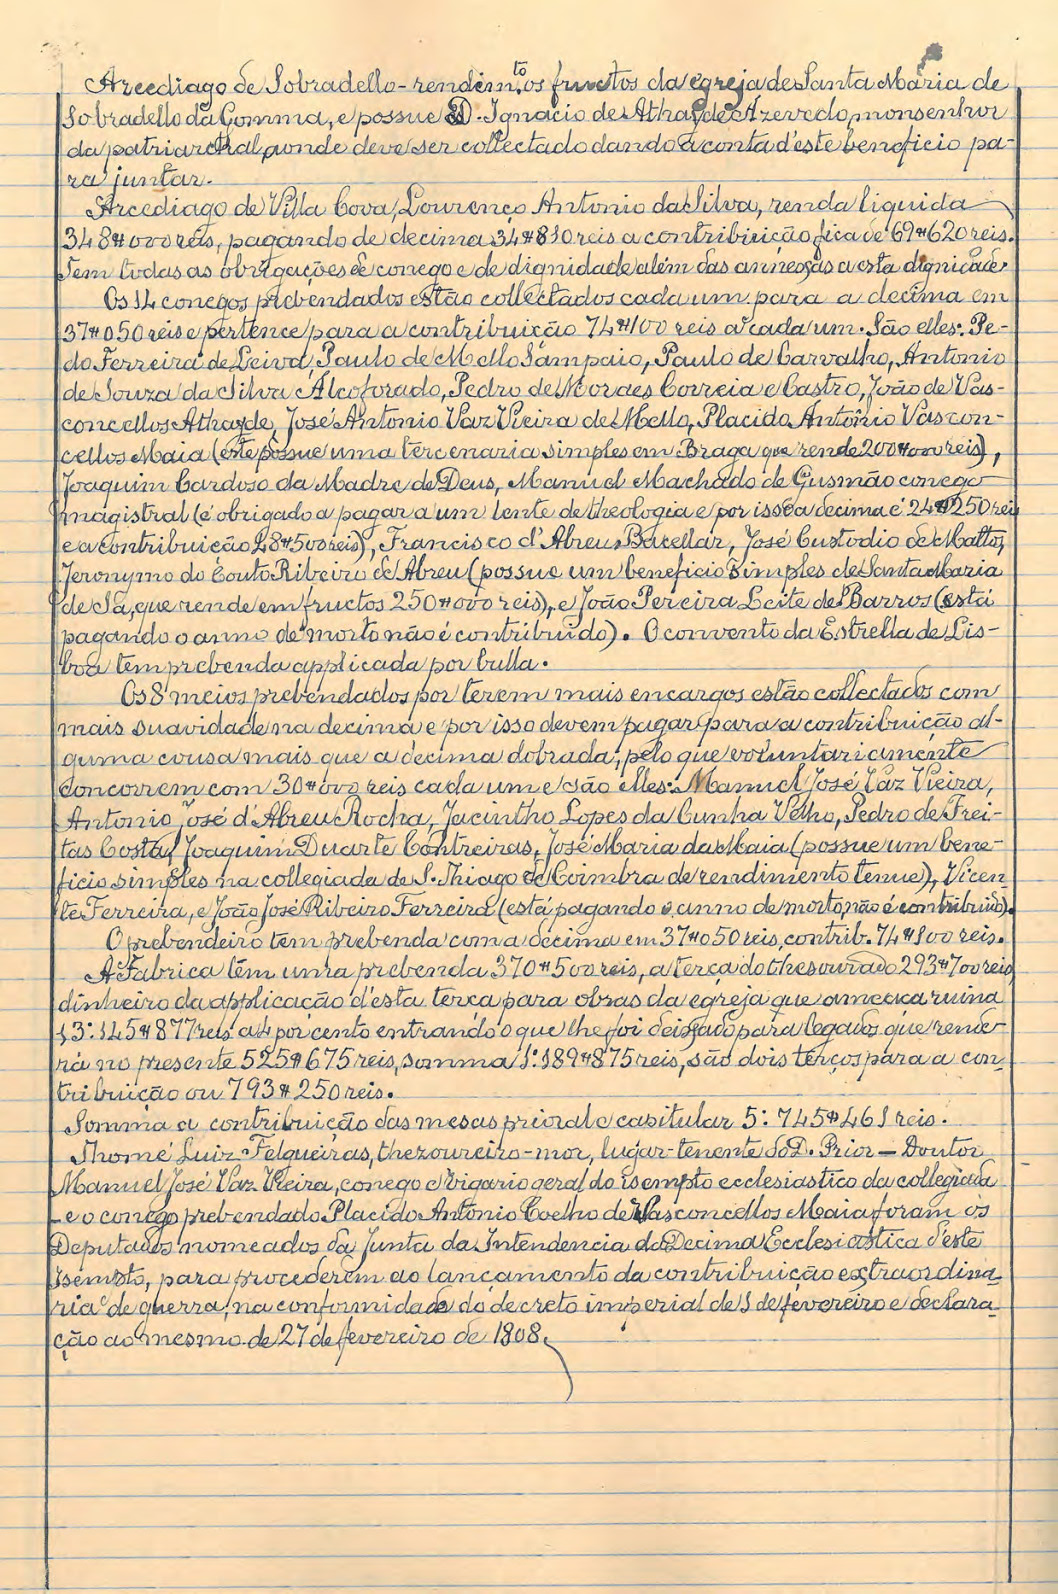 Arcediago de Sobradello - rendim.to os fructos da egreja de Santa Maria de
Sobradello da Gomma, e possue D. Ignacio de Athayde Azevedo, monsenhor
da patriarchal, aonde deve ser collectado dando a conta d'este beneficio pa-
ra juntar.
Arcediago de Villa Cova, Lourenço Antonio da Silva, renda liquida
348$000 reis, pagando de decima 34$810 reis a contribuição fica de 69$620 reis.
Tem todas as obrigações de conego e de dignidade além das annexas a esta dignidade.
Os 14 conegos prebendados estão collectados cada um para a decima em
37$050 reis e pertence para a contribuição 74$100 reis a cada um. São elles: Pe-
do Ferreira de Leiva, Paulo de Mello Sampaio, Paulo de Carvalho, Antonio
de Souza da Silva Alcoforado, Pedro de Moraes Correia e Castro, João de Vas-
concellos Athayde, José Antonio Vaz Vieira de Mello, Placido Antonio Vascon-
cellos Maia (este possue uma tercenaria simples em Braga que rende 200$000 reis),
Joaquim Cardoso da Madre de Deus, Manuel Machado de Gusmão conego
magistral (é obrigado a pagar a um lente de theologia e por isso a decima é 24$250 reis
e a contribuição 48$500 reis), Francisco d'Abreu Bacellar, José Custodio de Mattos,
Jeronymo do Couto Ribeiro de Abreu (possue um beneficio simples de Santa Maria
de Sá, que rende em fructos 250$000 reis), e João Pereira Leite de Barros (está
pagando o anno de morto não é contribuido). O convento da Estrella de Lis-
boa tem prebenda applicada por bulla.
Os 8 meios prebendados por terem mais encargos estão collectados com
mais suavidade na decima e por isso devem pagar para a contribuição al-
guma cousa mais que a decima dobrada, pelo que voluntariamente
concorrem com 30$000 reis cada um e são elles: Manuel José Vaz Vieira,
Antonio José d'Abreu Rocha, Jacintho Lopes da Cunha Velho, Pedro de Frei-
tas Costa, Joaquim Duarte Contreiras, José Maria da Maia (possue um bene-
ficio simples na collegiada de S. Thiago de Coimbra de rendimento tenue), Vicen
te Ferreira, e João José Ribeiro Ferreira (está pagando o anno de morto, não é contribuido).
O prebendeiro tem prebenda com a decima em 37$050 reis, contrib. 74$100 reis.
A Fabrica têm uma prebenda 370$500 reis, a terça do thesourado 293$700 reis,
dinheiro da applicação d'esta terça para obras da egreja que ameaça ruina
13:145$877 reis a 4 por cento entrando o que lhe foi deixado para legados que rende-
rá no presente 525$675 reis, somma 1:189$875 reis, são dois terços para a con-
tribuição ou 793$250 reis.
Somma a contribuição das mesas prioral e capitular 5:745$461 reis.
Thomé Luiz Felgueiras, thezoureiro-mor, lugar-tenente do D. Prior — Doutor
Manuel José Vaz Vieira, conego e vigario geral do isempto ecclesiastico da collegiada
- e o conego prebendado Placido Antonio Coelho de Vasconcellos Maia foram os
Deputados nomeados da Junta da Intendencia da Decima Ecclesiastica d'este
Isempto, para procederem ao lançamento da contribuição extraordina-
ria de guerra, na conformidade do decreto imperial de 1 de fevereiro e declara-
ção ao mesmo de 27 de fevereiro de 1808.